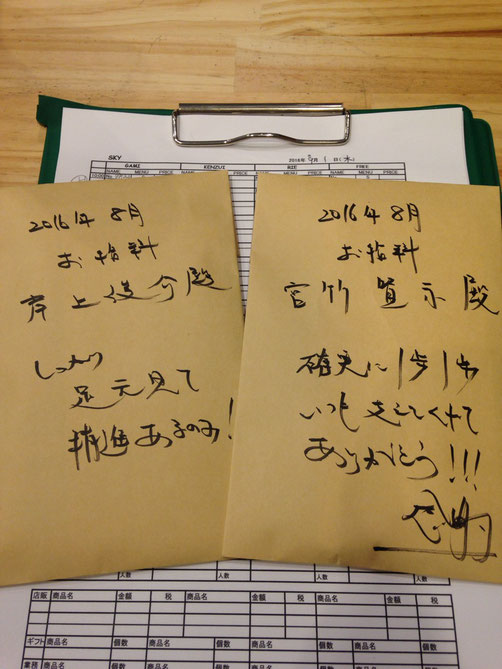 SKY 2016年 9月 1日(木)
GAMI KENZUI RIE FREE
NAME MENU PRICE NAME MENU PRICE NAME MENU PRICE NAME
2016年8月
お給料
岸上俊介殿
しっかり
足元見て
精進あるのみ!
2016年8月
お給料
宮竹 示殿
確実に1歩1歩
いつも支えてくれて
ありがとう!!!
感謝
人数 人数
店販 商品名 金額 税 商品名 金額 税 商品名
ギフト 商品名 個数 商品名 個数 商品名
商品名 個数 商品名 個数 商品名